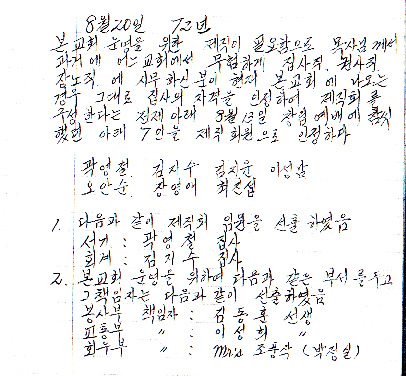 8월 20일 72년
본교회 운영을 위한 제직이 필요함으로 목사님께서
과거에 어느 교회에서 무험하게 집사직, 권사직
장노직에 시무하신 분이 현재 본교회에 나오는
경우 그대로 집사의 자격을 인정하여 제직회를
구성한다는 전제 아래 8월 13일 창립예배에 참석
했던 아래 7인을 제직회원으로 인정하다
곽영철 김지수 이선남
오안순 장영애 최진섭
1. 다음과 같이 제직회 임원을 선출하였음
서기 : 곽영철 집사
회계 : 김지수 집사
2. 본교회 운영을 위하여 다음과 같은 부서를 두고
그 책임자는 다음과 같이 선출하였음
봉사부 책임자 : 김동훈 선생
〃 : 이성희 〃
회우부 〃 : Mrs 조풍작 (박정실)